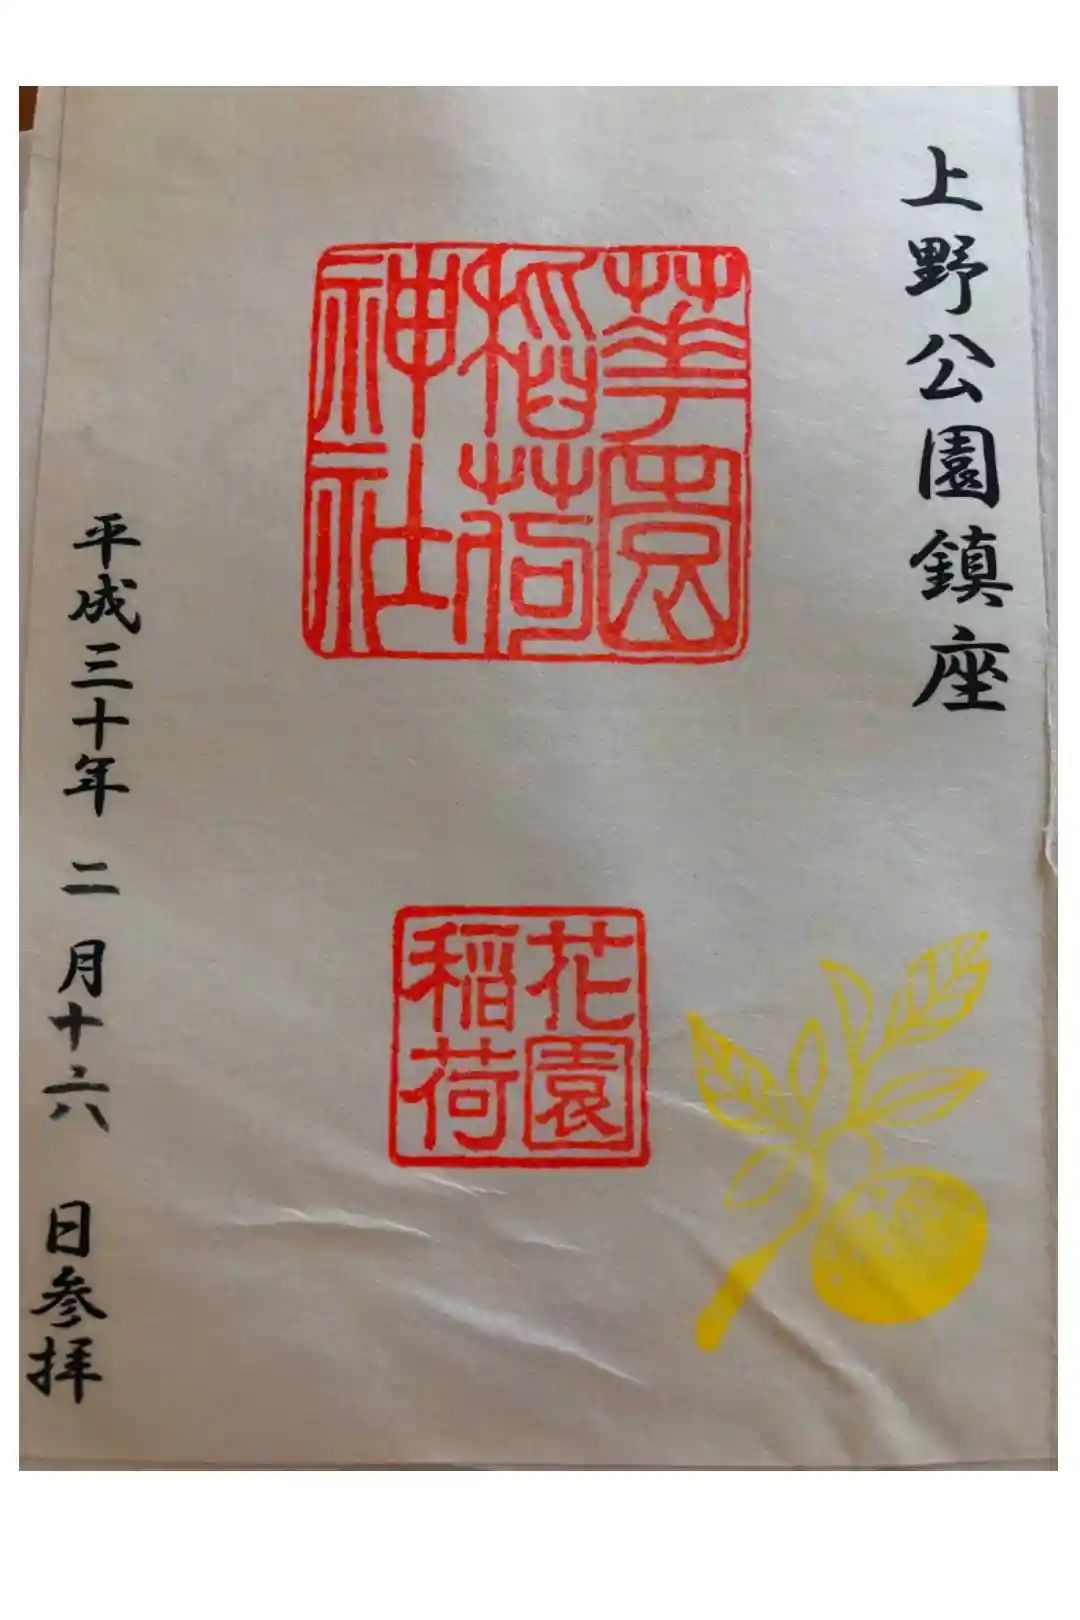 上野公園鎮座
華園
稲荷
神社
花園
稲荷
平成三十年 二月十六 日参拝